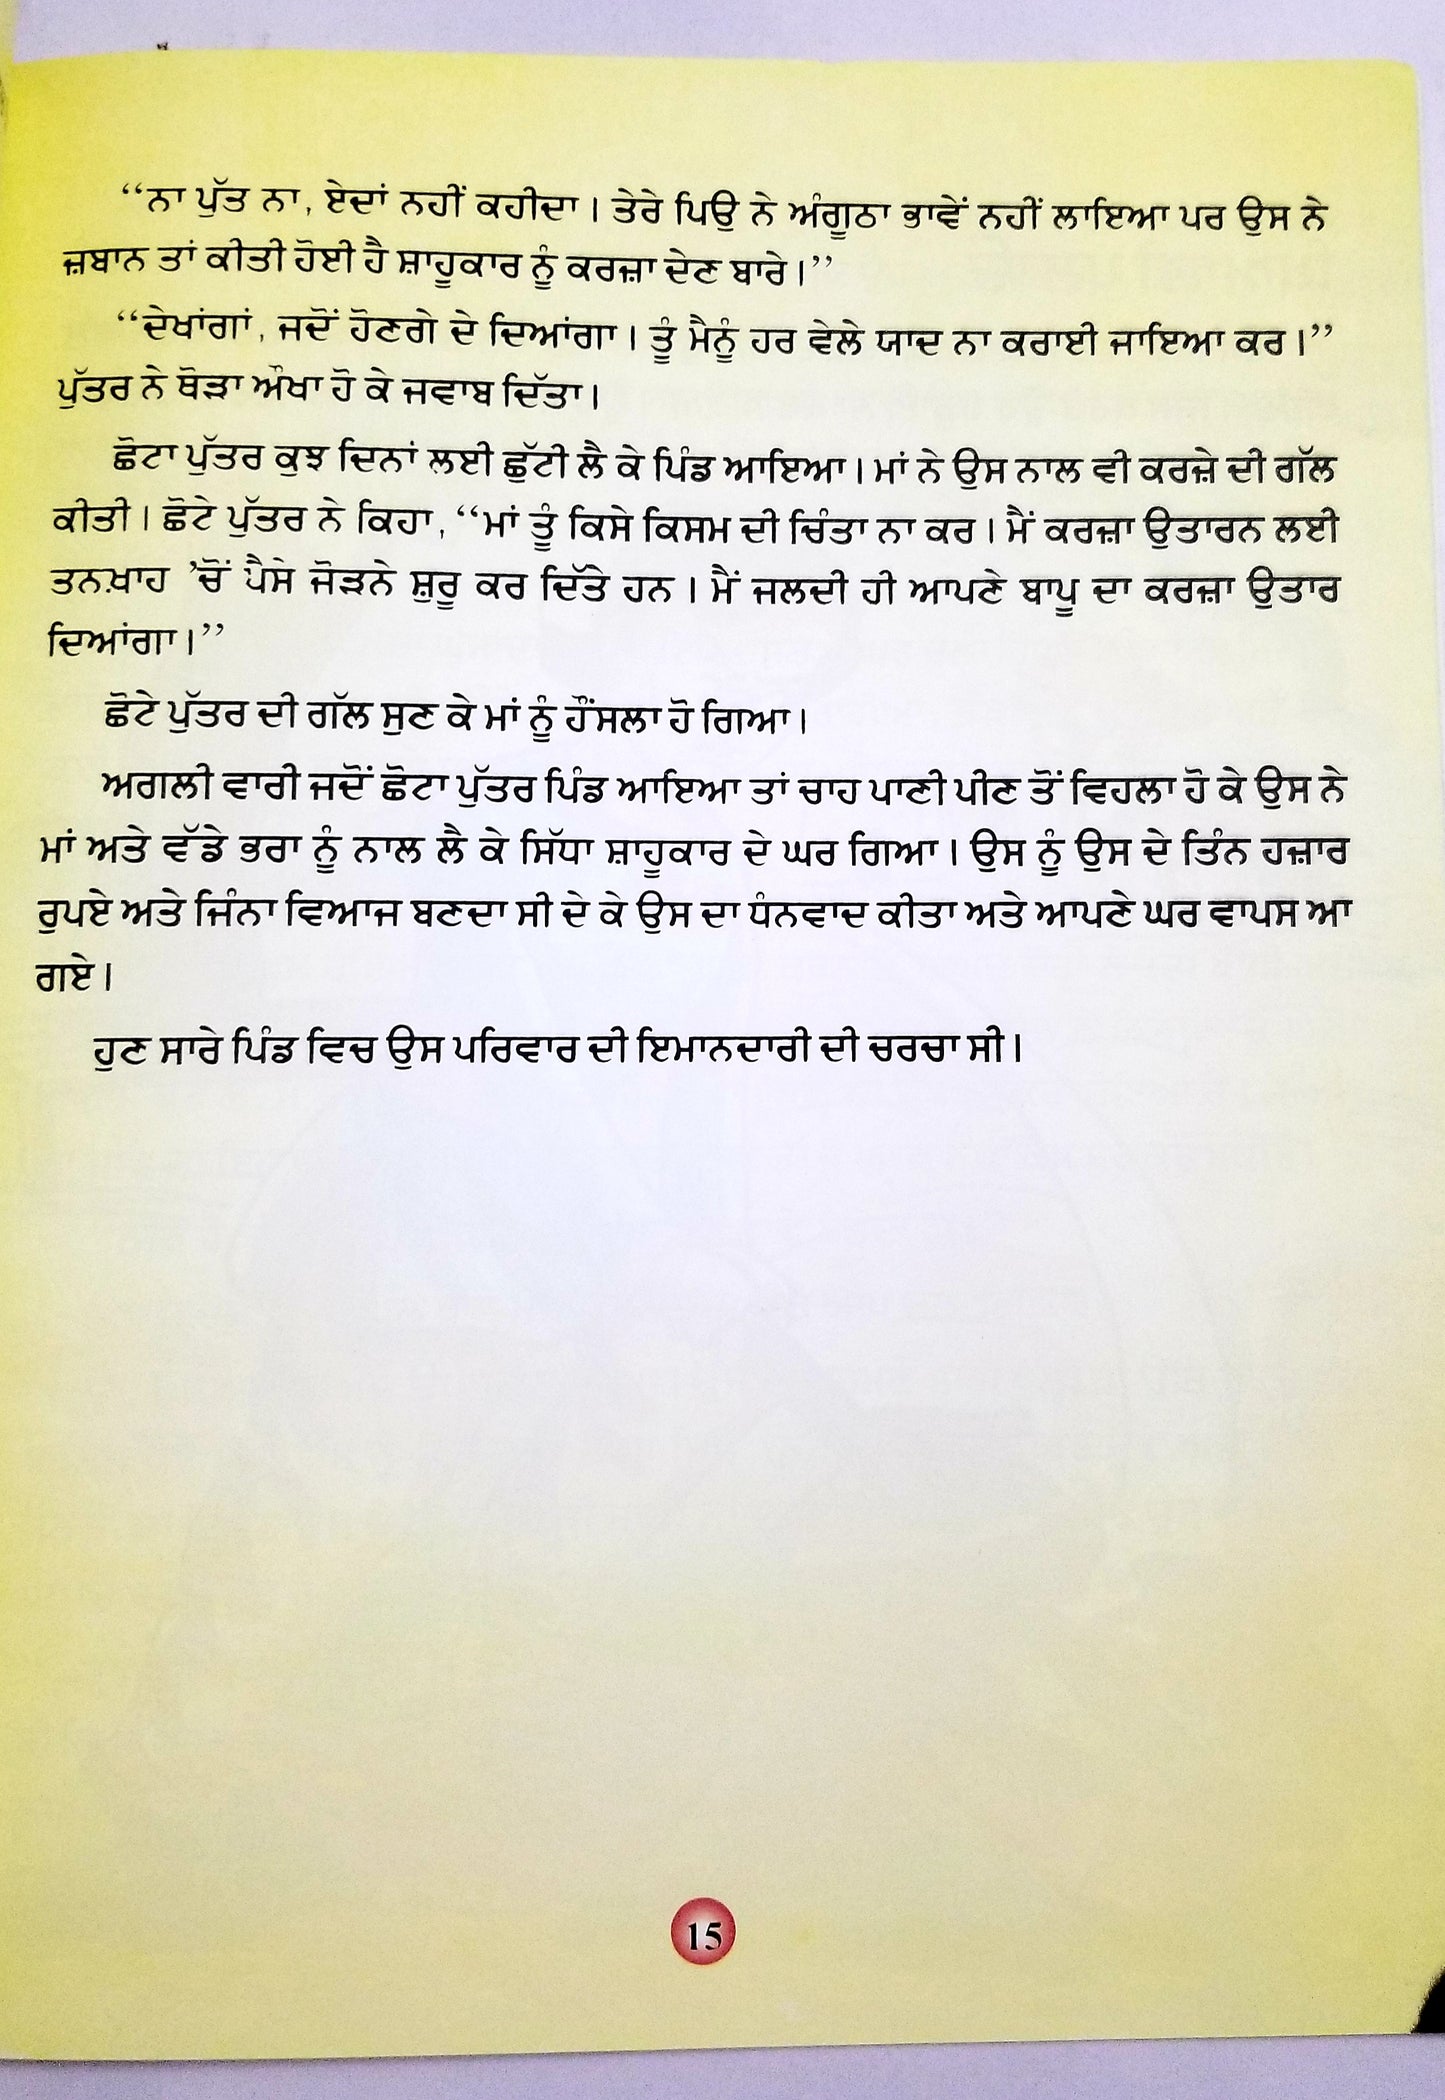 “ਨਾ ਪੁੱਤ ਨਾ, ਏਦਾਂ ਨਹੀਂ ਕਹੀਦਾ। ਤੇਰੇ ਪਿਉ ਨੇ ਅੰਗੂਠਾ ਭਾਵੇਂ ਨਹੀਂ ਲਾਇਆ ਪਰ ਉਸ ਨੇ
ਜ਼ਬਾਨ ਤਾਂ ਕੀਤੀ ਹੋਈ ਹੈ ਸ਼ਾਹੂਕਾਰ ਨੂੰ ਕਰਜ਼ਾ ਦੇਣ ਬਾਰੇ।”
“ਦੇਖਾਂਗਾਂ, ਜਦੋਂ ਹੋਣਗੇ ਦੇ ਦਿਆਂਗਾ। ਤੂੰ ਮੈਨੂੰ ਹਰ ਵੇਲੇ ਯਾਦ ਨਾ ਕਰਾਈ ਜਾਇਆ ਕਰ।”
ਪੁੱਤਰ ਨੇ ਥੋੜਾ ਔਖਾ ਹੋ ਕੇ ਜਵਾਬ ਦਿੱਤਾ।
ਛੋਟਾ ਪੁੱਤਰ ਕੁਝ ਦਿਨਾਂ ਲਈ ਛੁੱਟੀ ਲੈ ਕੇ ਪਿੰਡ ਆਇਆ। ਮਾਂ ਨੇ ਉਸ ਨਾਲ ਵੀ ਕਰਜ਼ੇ ਦੀ ਗੱਲ
ਕੀਤੀ। ਛੋਟੇ ਪੁੱਤਰ ਨੇ ਕਿਹਾ, “ਮਾਂ ਤੂੰ ਕਿਸੇ ਕਿਸਮ ਦੀ ਚਿੰਤਾ ਨਾ ਕਰ। ਮੈਂ ਕਰਜ਼ਾ ਉਤਾਰਨ ਲਈ
ਤਨਖ਼ਾਹ ’ਚੋਂ ਪੈਸੇ ਜੋੜਨੇ ਸ਼ੁਰੂ ਕਰ ਦਿੱਤੇ ਹਨ। ਮੈਂ ਜਲਦੀ ਹੀ ਆਪਣੇ ਬਾਪੂ ਦਾ ਕਰਜ਼ਾ ਉਤਾਰ
ਦਿਆਂਗਾ।”
ਛੋਟੇ ਪੁੱਤਰ ਦੀ ਗੱਲ ਸੁਣ ਕੇ ਮਾਂ ਨੂੰ ਹੌਂਸਲਾ ਹੋ ਗਿਆ।
ਅਗਲੀ ਵਾਰੀ ਜਦੋਂ ਛੋਟਾ ਪੁੱਤਰ ਪਿੰਡ ਆਇਆ ਤਾਂ ਚਾਹ ਪਾਣੀ ਪੀਣ ਤੋਂ ਵਿਹਲਾ ਹੋ ਕੇ ਉਸ ਨੇ
ਮਾਂ ਅਤੇ ਵੱਡੇ ਭਰਾ ਨੂੰ ਨਾਲ ਲੈ ਕੇ ਸਿੱਧਾ ਸ਼ਾਹੂਕਾਰ ਦੇ ਘਰ ਗਿਆ। ਉਸ ਨੂੰ ਉਸ ਦੇ ਤਿੰਨ ਹਜ਼ਾਰ
ਰੁਪਏ ਅਤੇ ਜਿੰਨਾ ਵਿਆਜ ਬਣਦਾ ਸੀ ਦੇ ਕੇ ਉਸ ਦਾ ਧੰਨਵਾਦ ਕੀਤਾ ਅਤੇ ਆਪਣੇ ਘਰ ਵਾਪਸ ਆ
ਗਏ।
ਹੁਣ ਸਾਰੇ ਪਿੰਡ ਵਿਚ ਉਸ ਪਰਿਵਾਰ ਦੀ ਇਮਾਨਦਾਰੀ ਦੀ ਚਰਚਾ ਸੀ।
15